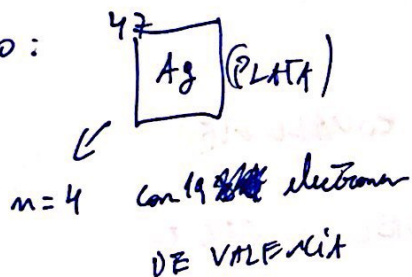 o:
47
Ag (PLATA)
n=4 con 19 electrones
DE VALENCIA